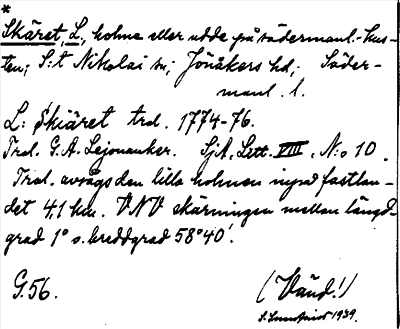 *
Skäret, L., holme eller udde på södermanl.-kus-
ten; S:t Nikolai sn; Jönåkers hd; Söder-
manl. l.
L: Skiäret trd. 1774-76.
Trol. G.A. Lejonanker. SjA, Lett. VIII. N:o 10.
Trol. avsågs den lilla holmen invid fastlan-
det 4,1 km. VNV skärningen mellan längd-
grad 1° o. breddgrad 58°40'.
G.56. (Vänd!)
1939.